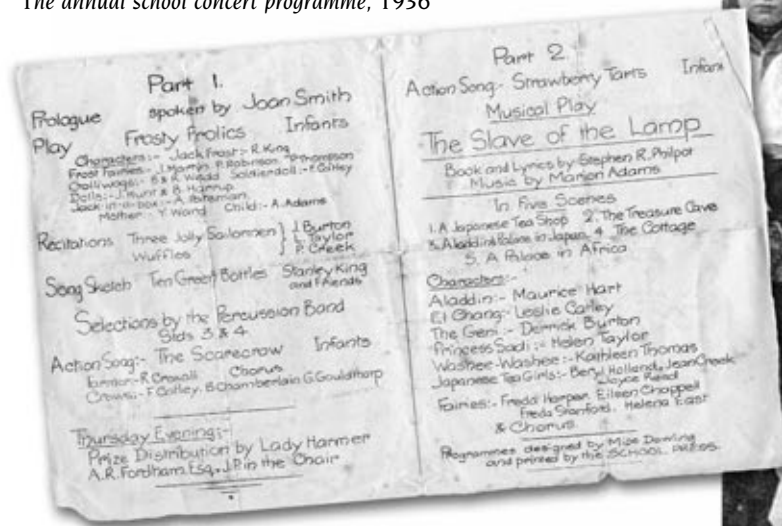 The annual school concert programme, 1936
Part 1.
Prologue spoken by Joan Smith
Play Frosty Frolics Infants
Characters:- Jack Frost:- R. King
Frost Fairies:- J. Martin. P. Robinson. P. Thompson
Golliwogs:- B & R. Wadd Soldier doll:- F. Catley
Dolls:- J. Hunt & B. Harrup
Jack-in-a-box:- A. Bateman
Mother:- Y. Ward Child:- A. Adams
Recitations Three Jolly Sailormen } J. Burton
Wuffles L. Taylor
P. Creek
Song Sketch Ten Green Bottles Stanley King
and Friends
Selections by the Percussion Band
Stds 3 & 4
Action Song:- The Scarecrow Infants
Farmer:- R. Chorus
Crows:- F. Catley. B Chamberlain G. Gouldthorp
Thursday Evening:-
Prize Distribution by Lady Harmer
A.R. Fordham. Esq. J.P. in the Chair
Part 2
Action Song:- Strawberry Tarts Infan
Musical Play
The Slave of the Lamp
Book and Lyrics by Stephen R. Philpot
Music by Marion Adams
In Five Scenes
1. A Japanese Tea Shop 2. The Treasure Cave
3. Aladdin's Palace in Japan. 4. The Cottage
5. A Palace in Africa
Characters:-
Aladdin:- Maurice Hart
El Chang:- Leslie Carley
The Geni:- Derrick Burton
Princess Sadi:- Helen Taylor
Washee-Washee:- Kathleen Thomas
Japanese Tea Girls:- Beryl Holland, Jean Creek
Joyce Read
Fairies:- Freda Harper, Eileen Chappell
Freda Stanford. Helena East
& Chorus
Programmes designed by Miss Dowling
and printed by the SCHOOL PRESS.